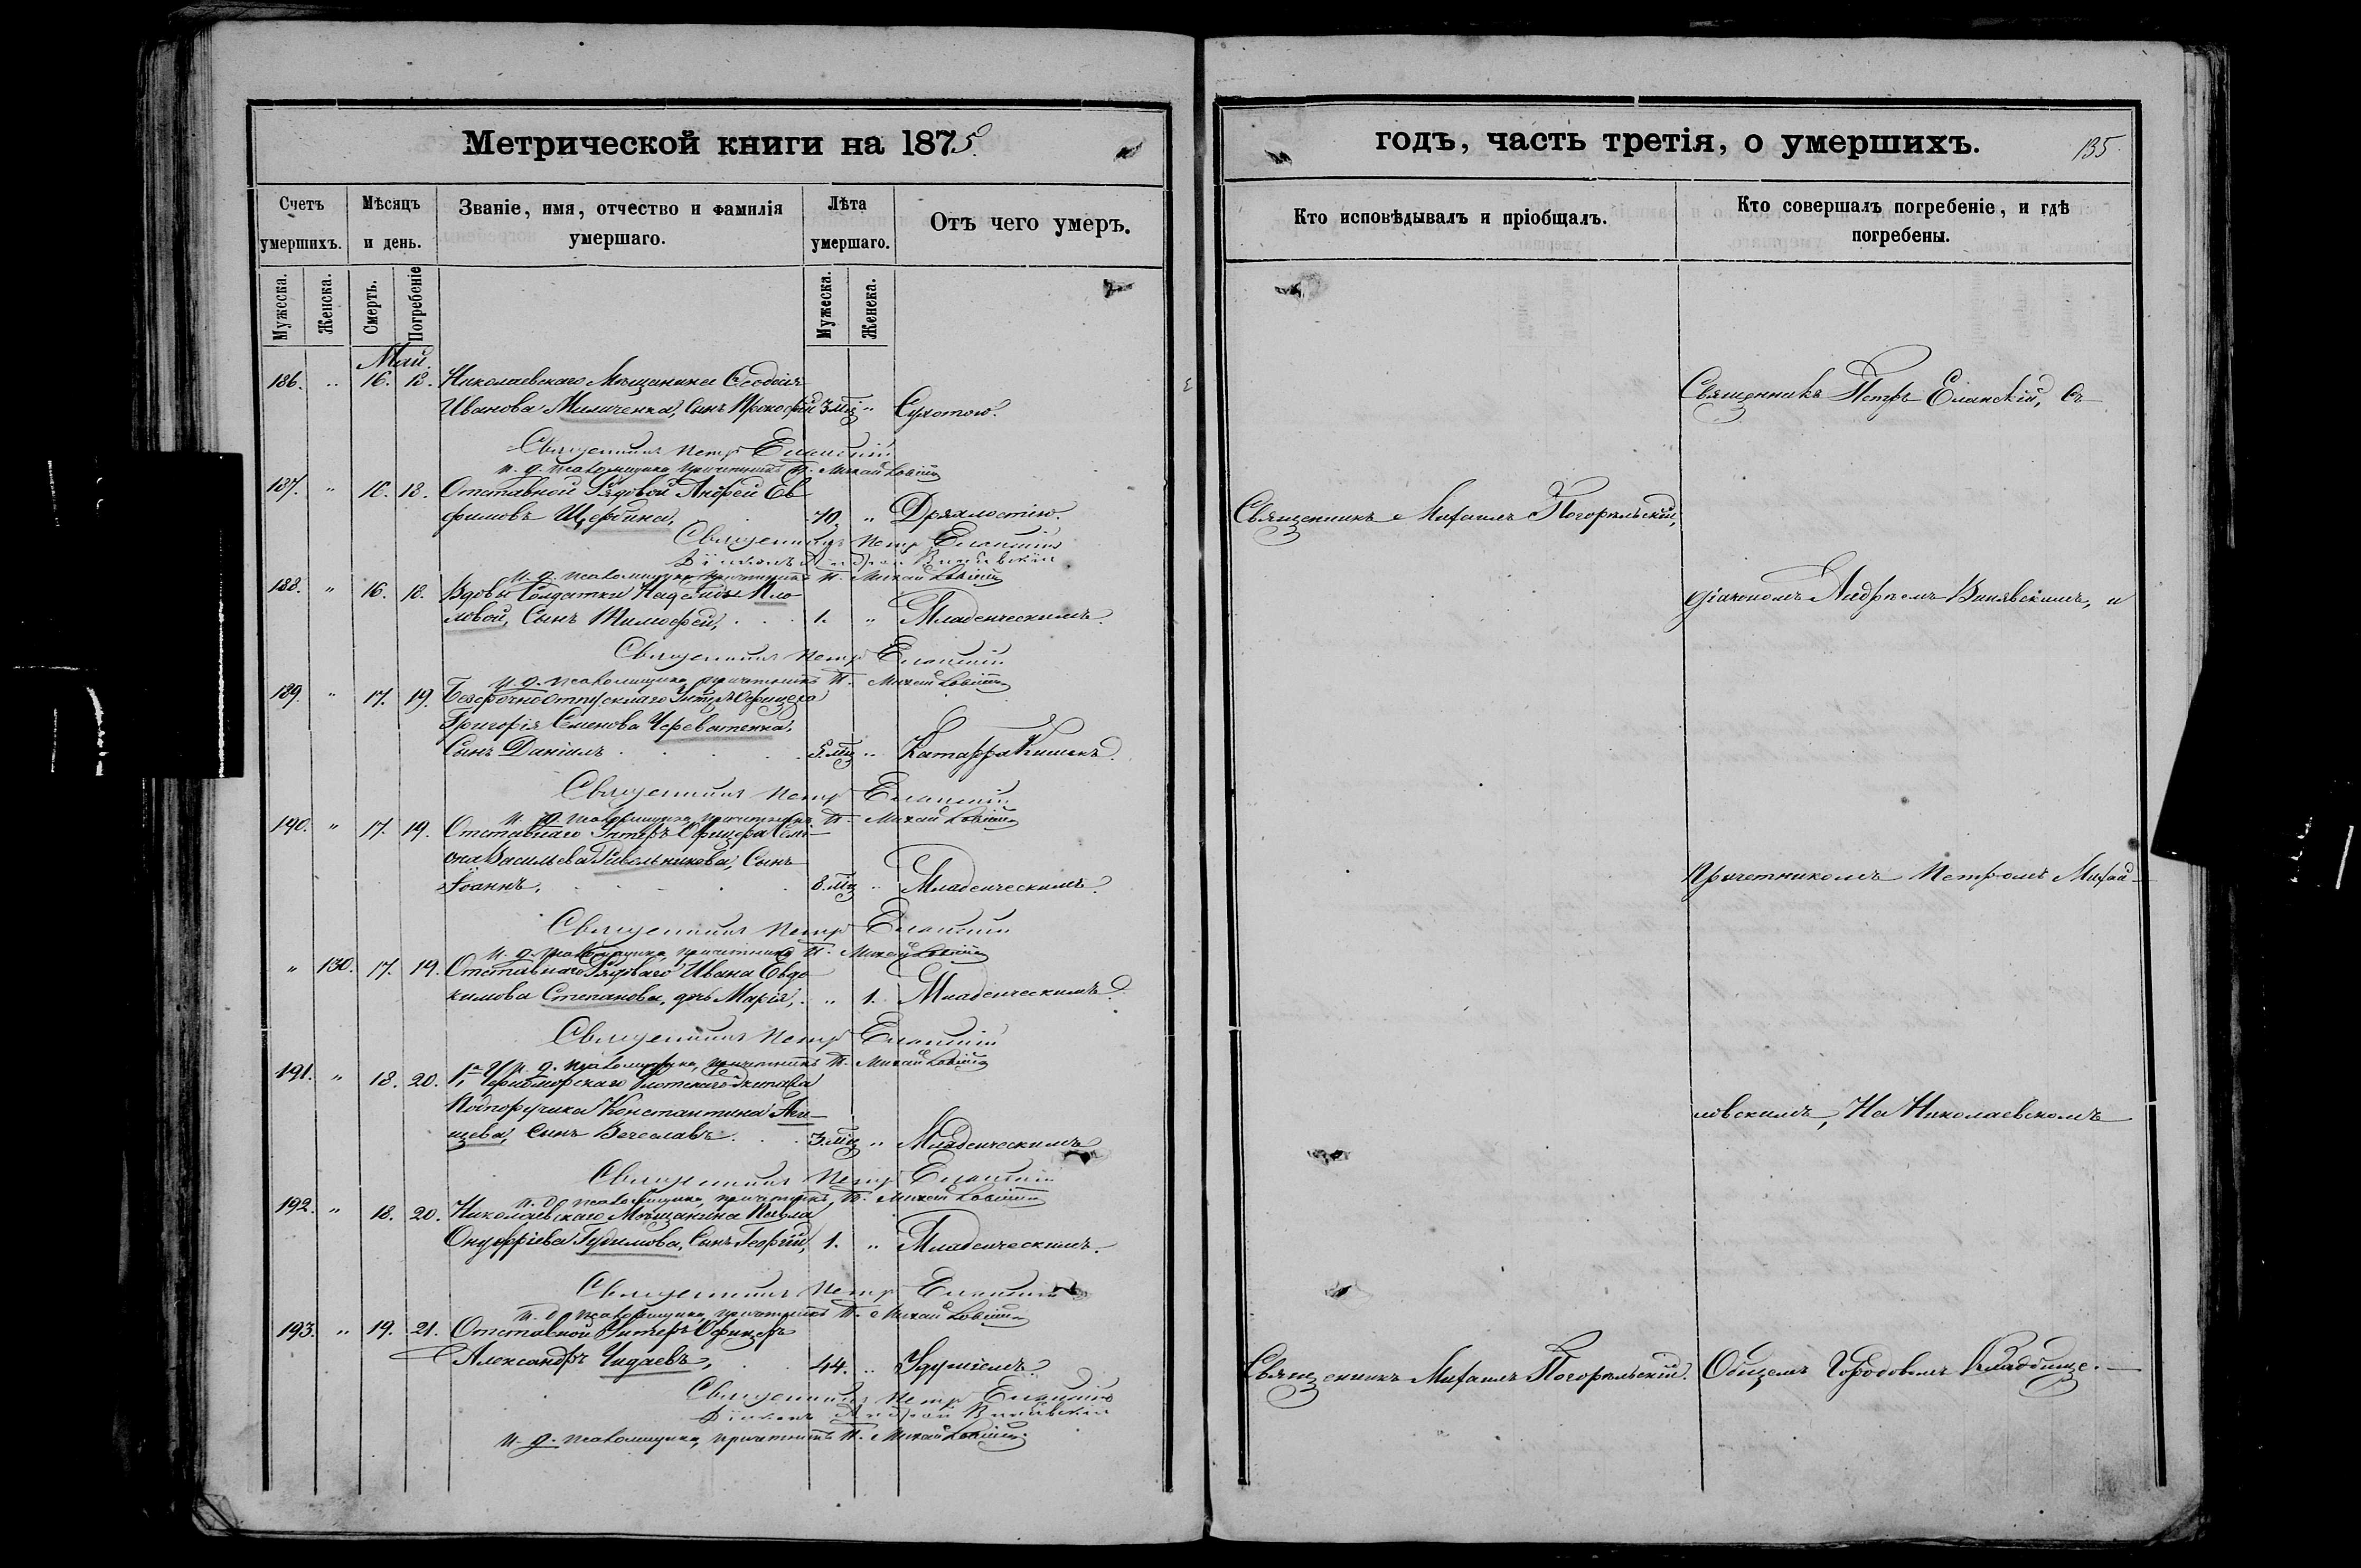 Метрической книги на 1875.
Счетъ умершихъ.
Мѣсяцъ и день.
Званіе, имя, отчество и фамилія умершаго.
Лѣта умершаго.
Отъ чего умеръ.
Мужеска.
Женска.
Смерть.
Погребеніе
Мужеска.
Женска.
Май.
186. " 16. 18. Николаевскаго Мѣщанина Ѳеодосія
Иванова Миличенка, Сынъ Прокофій 3 мц " Сухотою.
Священникъ Петръ Еланскій
и. д. псаломщика причетникъ П. Михайловскій
187. " 16. 18. Отставной Рядовой Андрей Ев
фимовъ Щербина, 70. " Дряхлостію.
Священникъ Петръ Еланскій
Діаконъ Андрей Винявскій
и. д. псаломщика причетникъ П. Михайловскій
188. " 16. 18. Вдовы Солдатки Надежды
ловой, Сынъ Тимофей, 1. " Младенческимъ.
Священникъ Петръ Еланскій
и. д. псаломщика причетникъ П. Михайловскій
189. " 17. 19. Безсрочноотпускнаго Унтеръ Офицера
Григорія Семенова Череватенка,
Сынъ Даніилъ 5 мц " Катарра Кишекъ.
Священникъ Петръ Еланскій
и. д. псаломщика причетникъ П. Михайловскій
190. " 17. 19. Отставнаго Унтеръ Офицера Сем-
она Васильева Сынъ
Іоаннъ, 8 мц " Младенческимъ.
Священникъ Петръ Еланскій
и. д. псаломщика причетникъ П. Михайловскій
" 130. 17. 19. Отставнаго Рядоваго Ивана Евдо
кимова Степанова, дочь Марія, " 1. Младенческимъ.
Священникъ Петръ Еланскій
и. д. псаломщика, причетникъ П. Михайловскій
191. " 18. 20. 1го Черноморскаго Флотскаго Экипажа
Подпоручика Константина
Сынъ Вечеславъ 3 мц " Младенческимъ
Священникъ Петръ Еланскій
и. д. псаломщика, причетникъ П. Михайловскій
192. " 18. 20. Николаевскаго Мѣщанина Павла
Онуфріева Гудимова, Сынъ Георгій, 1. " Младенческимъ.
Священникъ Петръ Еланскій
и. д. псаломщика, причетникъ П. Михайловскій
193. " 19. 21. Отставной Унтеръ Офицеръ
Александръ Чидаевъ, 44. " Удушіемъ.
Священникъ Петръ Еланскій
Діаконъ Андрей Винявскій
и. д. псаломщика, причетникъ П. Михайловскій
годъ, часть третія, о умершихъ.
135.
Кто исповѣдывалъ и пріобщалъ.
Кто совершалъ погребеніе, и гдѣ погребены.
Священникъ Петръ Еланскій, съ
Священникъ Михаилъ Погорѣльскій,
діакономъ Андреемъ Винявскимъ, и
Причетникомъ Петромъ Михай-
ловскимъ, На Николаевскомъ
Священникъ Михаилъ Погорѣльскій. Общемъ Городовомъ Кладбище.